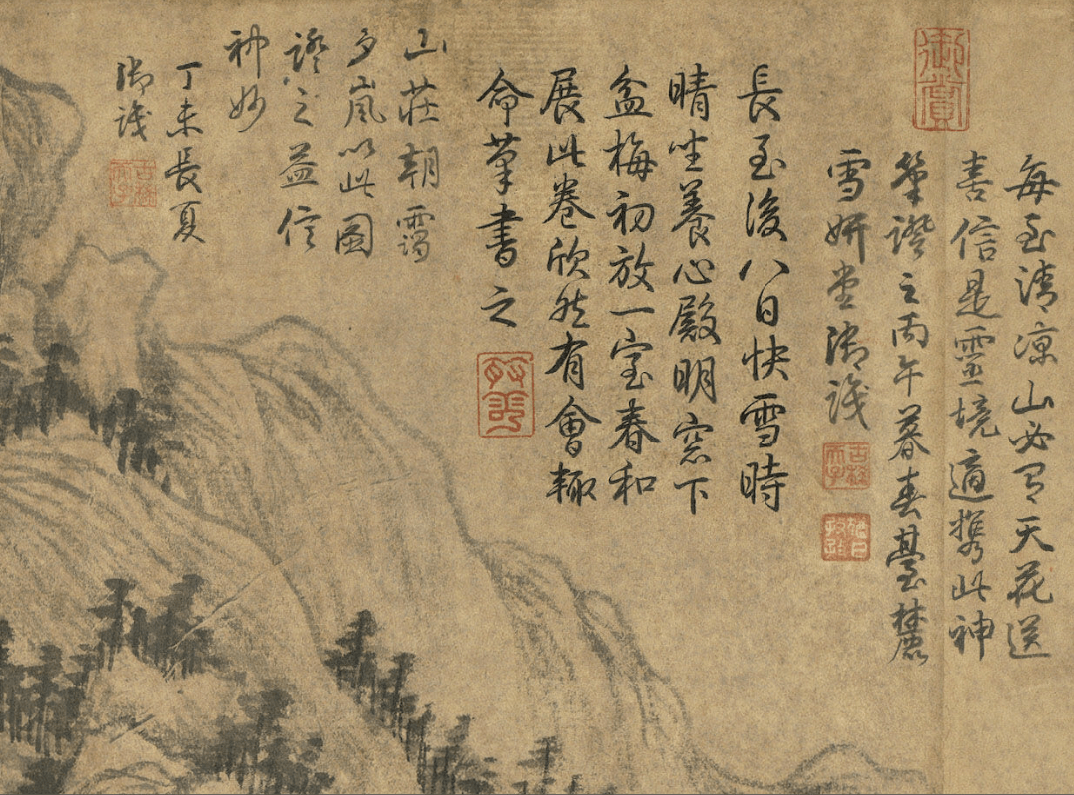 每至清涼山必有天花送
喜信是靈境適攜此神
筆證之丙午暮春臺麓
雪妍堂御識
長至後八日快雪時
晴坐養心殿明窓下
盆梅初放一室春和
展此卷欣然有會輒
命筆書之
山莊朝靄
夕嵐以此圖
證之益信
神妙
丁未長夏
御識
御賞